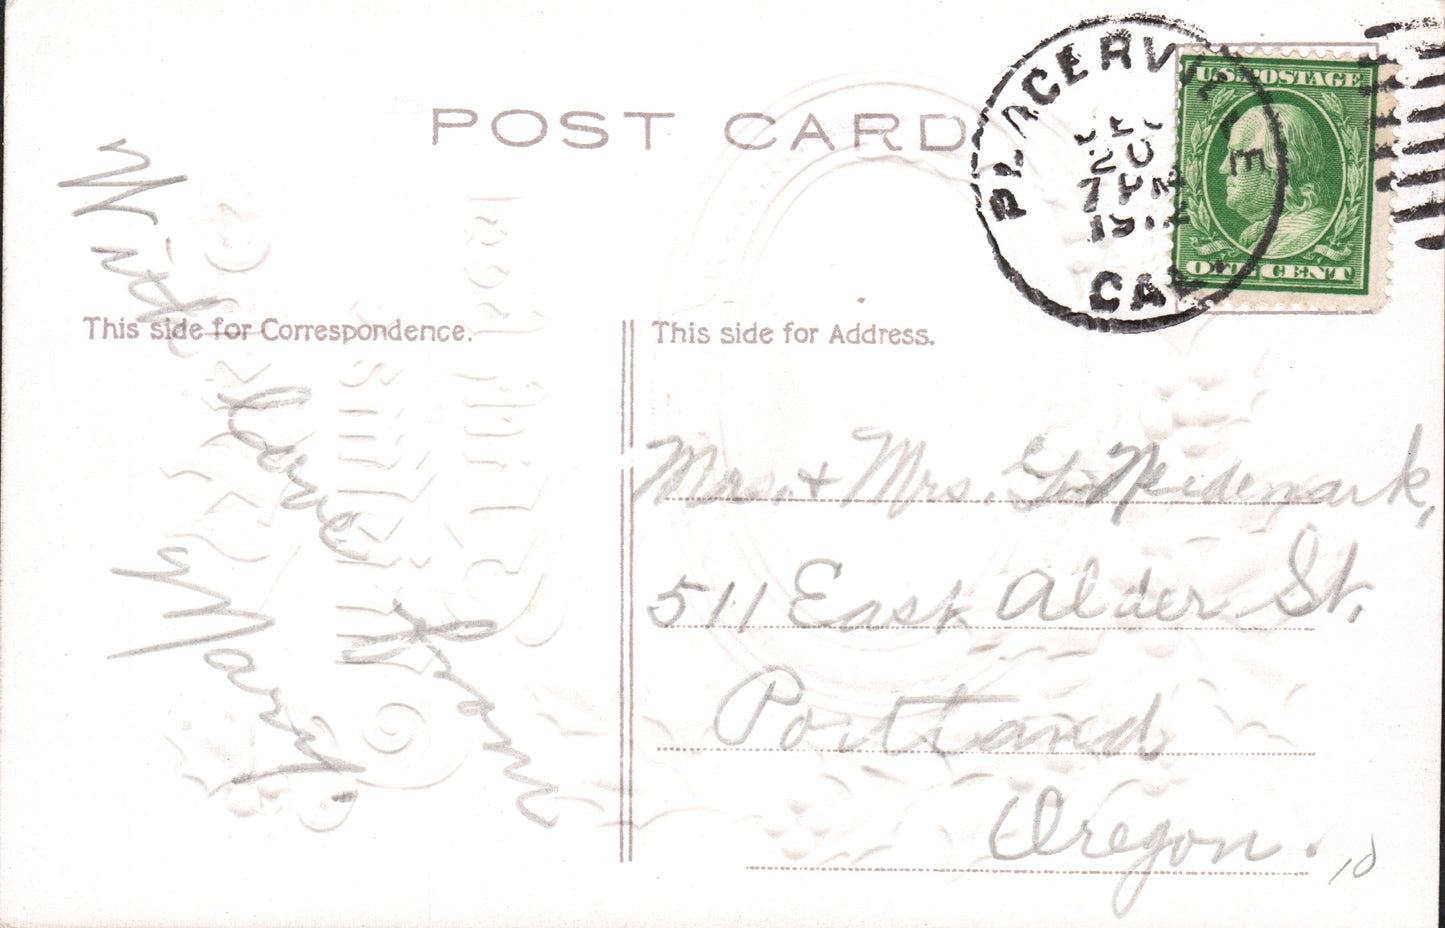 POST CARD
PLACERVILLE
20
7 PM
1912
CAL.
U.S. POSTAGE
ONE CENT
This side for Correspondence.
This side for Address.
With
love from
Mary.
Mrs. + Mrs. G.
511 East Alder St.
Portland
Oregon.
10